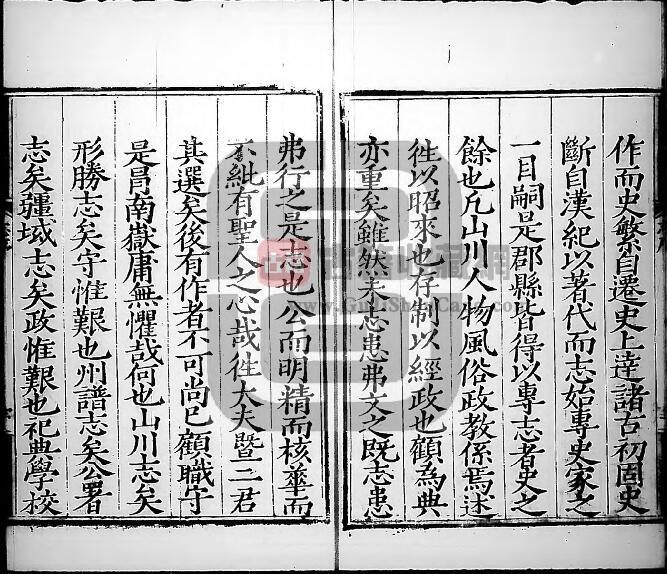 作而史繁自遷史上逹諸古初固史
斷自漢紀以著代而志始專史家之
一目嗣是郡縣皆得以專志者史之
餘也凡山川人物風俗政教係焉述
徃以昭來也存制以經政也顧為典
亦重矣雖然未志患弗文之既志患
弗行之是志也公而明精而核華而
不紕有聖人之心哉徃大夫暨二君
其選矣後有作者不可尚已顧職守
是胥南嶽庸無懼哉何也山川志矣
形勝志矣守惟艱也州譜志矣公署
志矣疆域志矣政惟艱也祀典學校